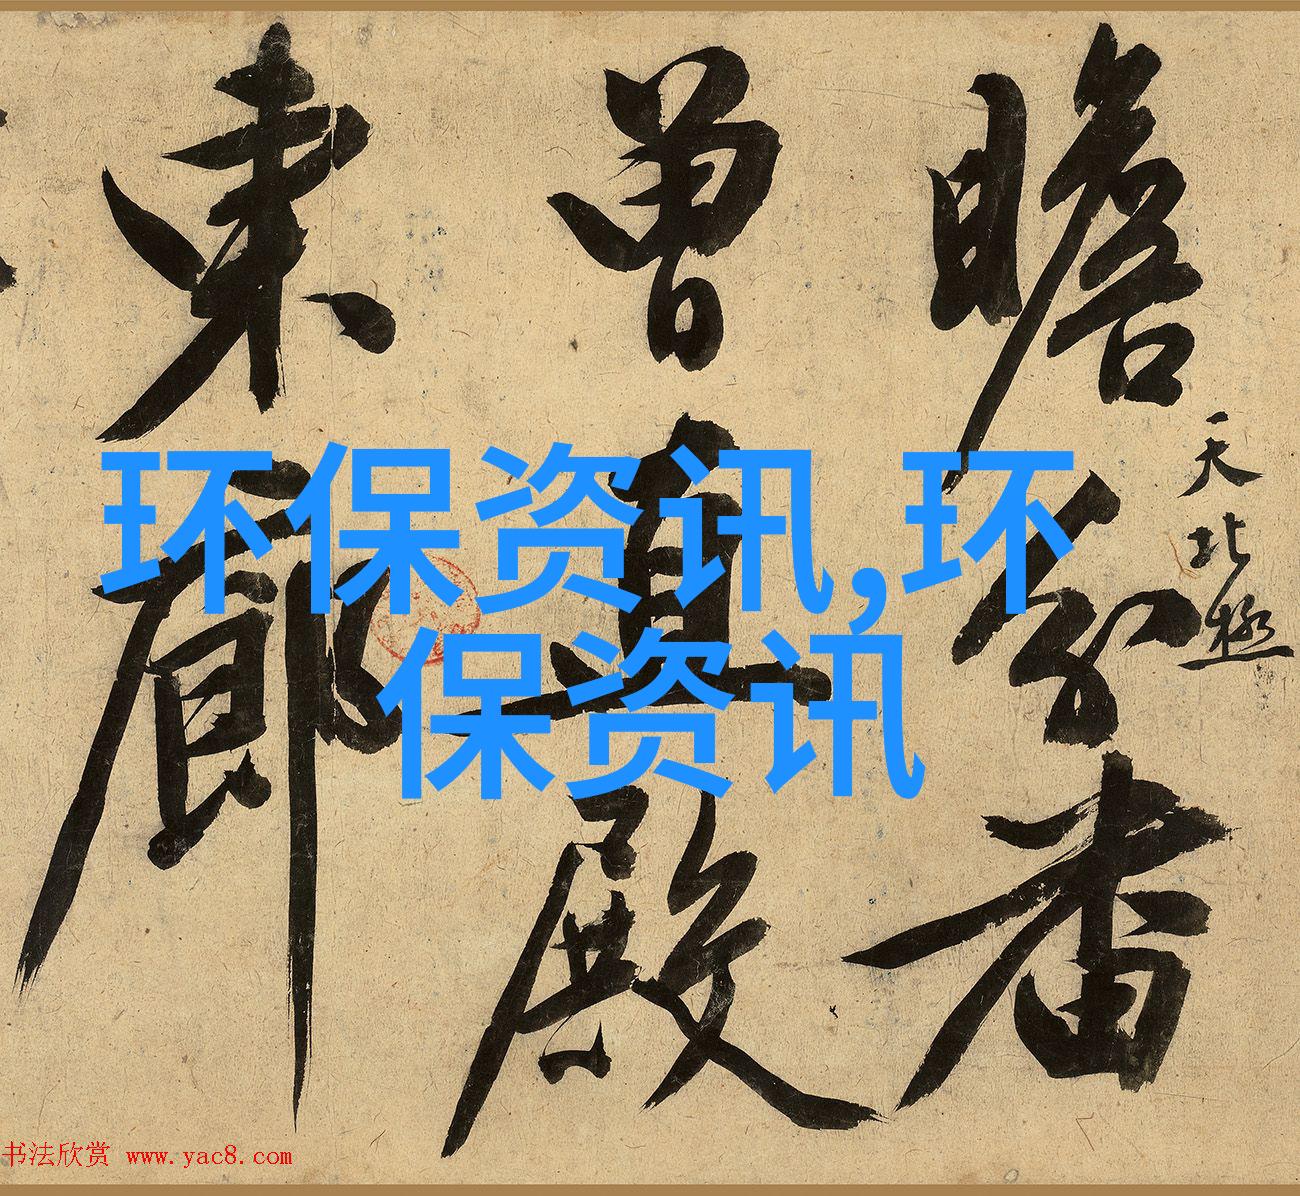 瞻公番
天北極
曾直殿
東廊
环保资讯,环
保资讯
书法欣赏 www.yac8.com